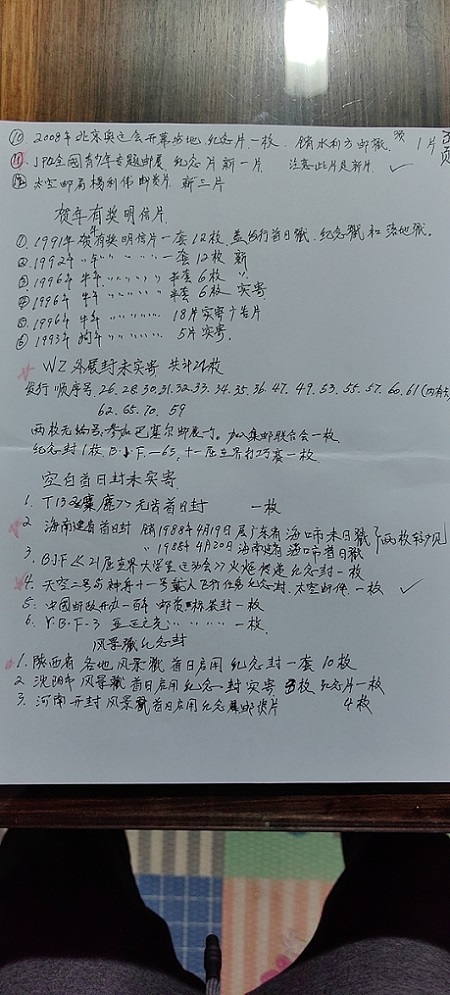 ⑩ 2008年北京奥运会开幕当地纪念片一枚. 销水利方邮戳. 1片
⑪ JP 全国青少年专题邮展 纪念片新一片 注意此片是新片. ✓
⑫ 太空邮局杨利伟邮资片 新三片
贺年有奖明信片
① 1991年 贺年有奖明信片一套12枚 盖发行首日戳. 纪念戳和落地戳.
② 1992年 〃年 〃〃〃〃〃 一套12枚 新
③ 1996年 牛年 〃〃〃〃〃 半套6枚 〃
④ 1996年 牛年 〃〃〃〃〃 半套6枚 实寄
⑤ 1996年 牛年 〃〃〃〃〃 18片实寄广告片
⑥ 1993年 狗年 〃〃〃〃〃 5片实寄.
WZ 外展封未实寄 共计21枚
发行顺序号 26.28.30.31.32.33.34.35.36.47.49.53.55.57.60.61
62.65.70.59
两枚无编号,参加巴塞尔邮展一个. 加入集邮联合会一枚
纪念封1枚 B.J.F.—65,十一届世界 赛一枚
空白首日封未实寄
1. T132麋鹿》无齿首日封 一枚
2 海南建省首日封 销1988年4月19日属广东省海口市末日戳「两枚较少见」
〃 1988年4月20日海南建省海口市首日戳
3. BJF《21届世界大学生运动会》火炬传递纪念封一枚
4. 天空二号与神舟十一号载人飞行任务纪念封. 太空邮件. 一枚 ✓
5. 中国邮政开办一百年 邮资 封一枚
6. Y.B.F-3 亚运之光 〃〃〃〃〃 一枚.
风景戳纪念封
1. 陕西省 各地风景戳首日启用纪念封一套10枚
2 沈阳市 风景戳首日启用纪念封实寄 3枚 纪念片一枚
3. 河南开封风景戳首日启用纪念 邮资片 4枚